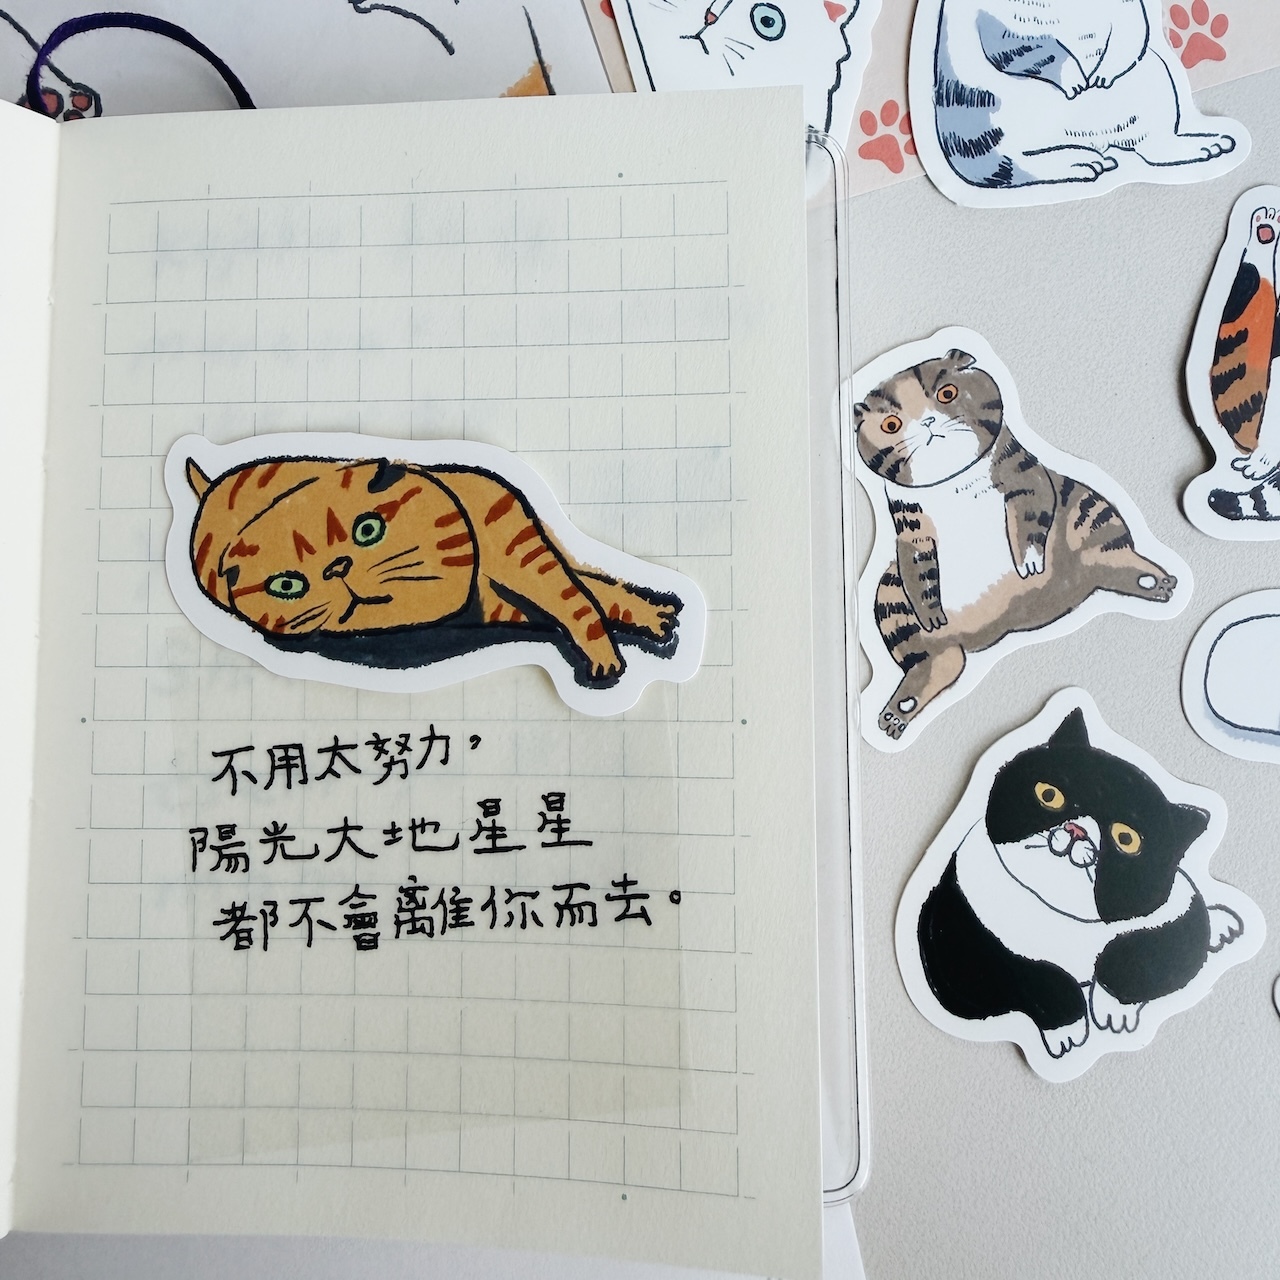 不用太努力，
陽光大地星星
都不會離你而去。